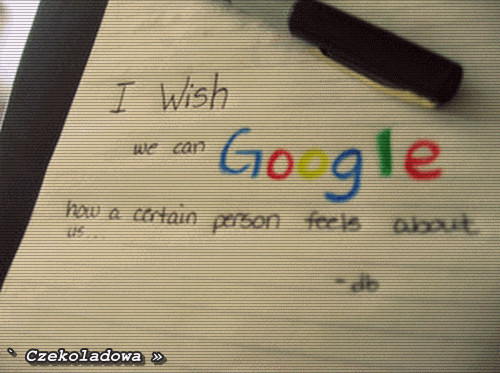 I Wish
we can Google
how a certain person feels about
us...
- db
` Czekoladowa »